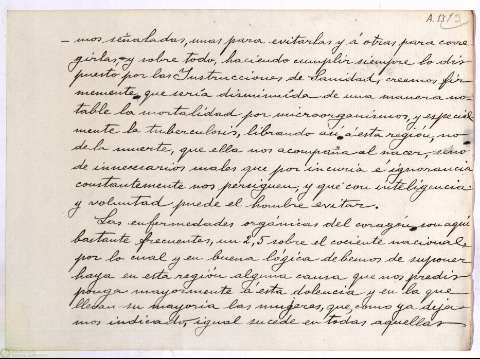 A. 13/3
– mos señaladas, unas para evitarlas y á otras para corre
girlas, y sobre todo, haciendo cumplir siempre lo dis
puesto por las Instrucciones de Sanidad, creemos fir
memente, que sería disminuida de una manera no
table la mortalidad por microorganismos, y especial
mente la tuberculosis, librando así, á esta región, no
de la muerte, que ella nos acompaña al nacer, sino
de innecesarios males que por incuria é ignorancia
constantemente nos persiguen, y que con inteligencia
y voluntad puede el hombre evitar.
Las enfermedades orgánicas del corazón son aquí
bastante frecuentes, un 2,5 sobre el cociente nacional,
por lo cual y en buena lógica debemos de suponer
haya en esta región alguna causa que nos predis
ponga mayormente á esta dolencia y en la que
llevan su mayoría las mujeres, que, como ya deja
mos indicado, igual sucede en todas aquellas